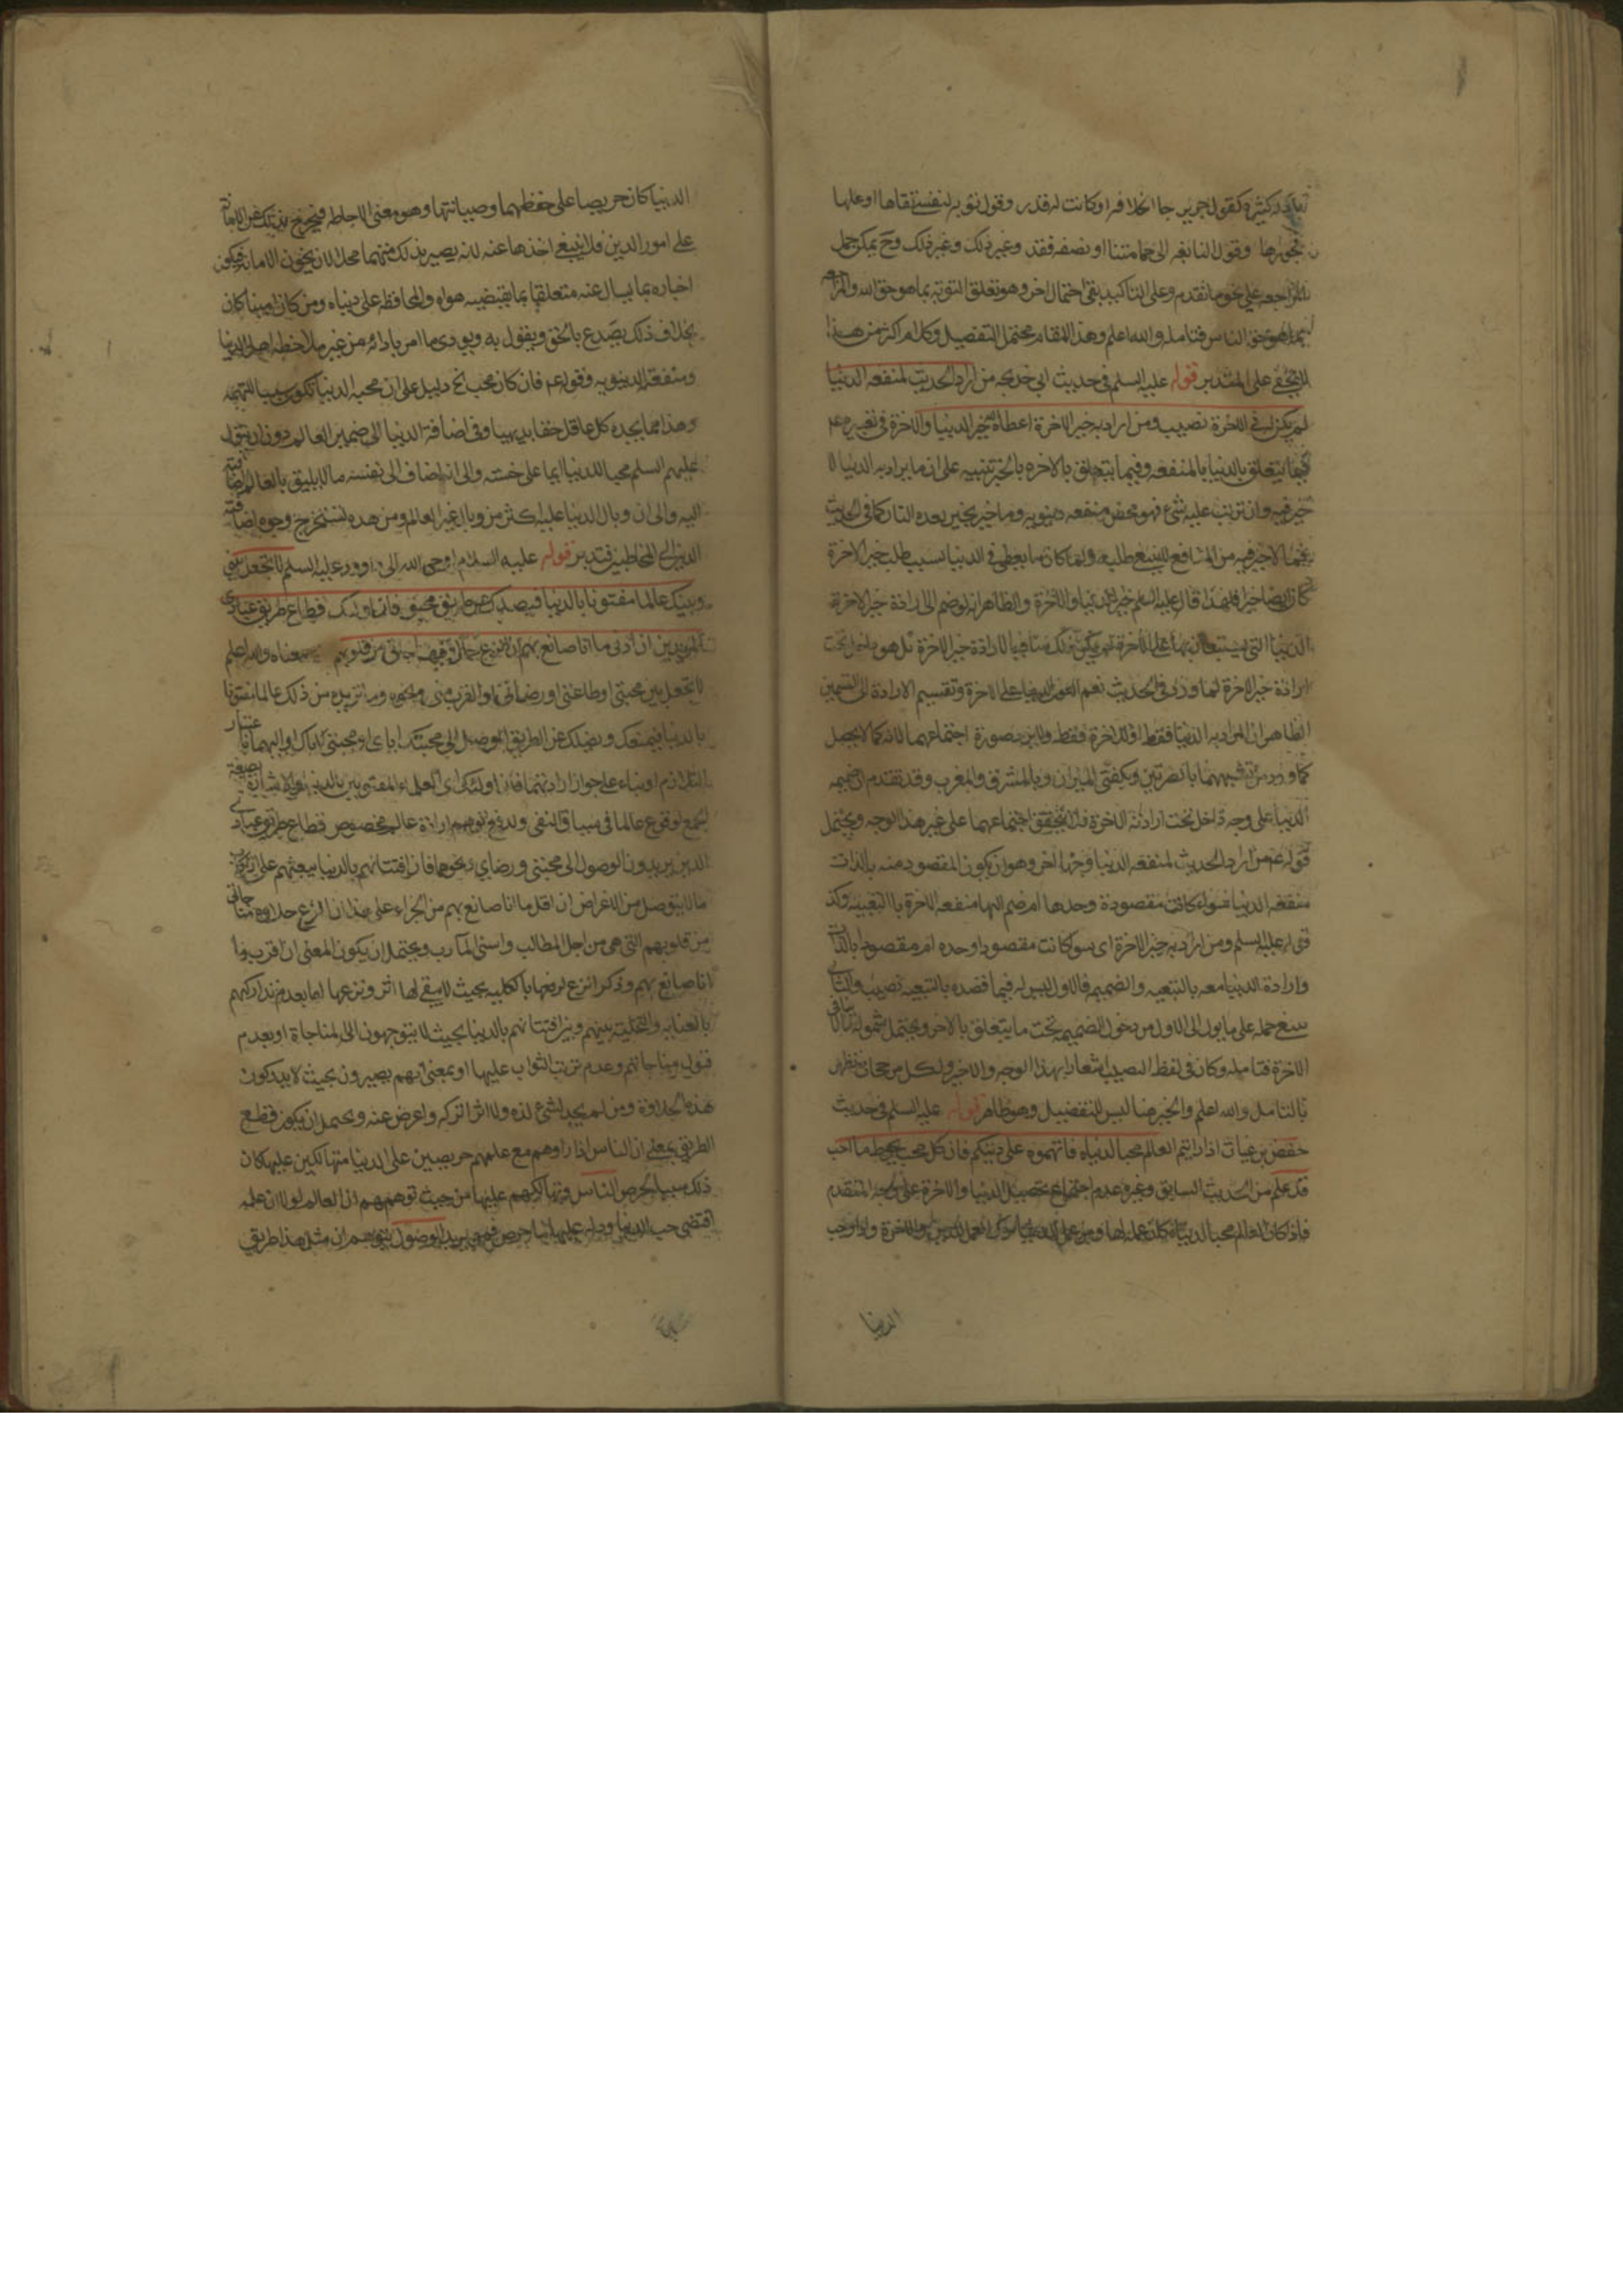 كثيرة كقول جرير جا الخلافة او كانت له قدر وقول توبة لنفسي تقاها او عليها
فجورها وقول النابغه الى حمامتنا او نصفه فقد وغير ذلك وغير ذلك وح يمكن حمل
المراجعه على نحو ما تقدم وعلى التاكيد بقى احتمال اخر وهو تعلق التوبه بما هو حق الله والمراجعه
بما هو حق الناس فتامل والله اعلم وهذا المقام محتمل التفصيل وكلام اكثر من هذا
لا يخفى على المتدبر قوله عليه السلم في حديث ابي خديجه من اراد الحديث لمنفعه الدنيا
لم يكن له في الاخرة نصيب ومن اراد به خير الاخرة اعطاه الله خير الدنيا والاخرة في تعبيره عم
فيما يتعلق بالدنيا بالمنفعه وفيما يتعلق بالاخره بالخير تنبيه على ان ما يراد به الدنيا لا
خير فيه وان ترتب عليه شئ فهو محض منفعه دنيويه وما خير بخير بعده النار كما في الحديث
لا خير فيه من المنافع لا ينبغي طلبه ولما كان ما يعطى في الدنيا بسبب طلب خير الاخرة
كان ايضا خيرا فلهذا قال عليه السلم خير الدنيا والاخرة والظاهر انه لو ضم الى ارادة خير الاخرة
الدنيا التي يستعان بها على الاخرة لم يكن ذلك منافيا لارادة خير الاخرة بل هو داخل تحت
ارادة خير الاخرة لما ورد في الحديث نعم العون الدنيا على الاخرة وتقسيم الارادة الى القسمين
الظاهر ان المراد به الدنيا فقط او الاخرة فقط ولا يرد صورة اجتماعهما لانه كما لا يحصل
كما ورد من تشبيههما بالضرتين وبكفتي الميزان وبالمشرق والمغرب وقد تقدم ان ضميمه
الدنيا على وجه داخل تحت ارادة الاخرة فلا يتحقق اجتماعهما على غير هذا الوجه ويحتمل
قوله عم من اراد الحديث لمنفعه الدنيا وجها اخر وهو ان يكون المقصود منه بالذات
منفعه الدنيا سواء كانت مقصودة وحدها ام ضم اليها منفعه الاخرة بالتبعيه وكذا
قوله عليه السلم ومن اراد به خير الاخرة اى سوا كانت مقصودا وحده ام مقصودا بالذات
وارادة الدنيا معه بالتبعيه والضميم فالاول ليس له فيما قصده بالتبعيه نصيب والثاني
ينبغي حمله على ما يول الى الاول من دخول الضميمه تحت ما يتعلق بالاخر ويحتمل شموله
الاخرة فتامله وكان في لفظ النصيب اشعارا بهذا الوجه والاخير ولكل مرجحات تظهر
بالتامل والله اعلم والخير هنا ليس للتفضيل وهو ظاهر قوله عليه السلم في حديث
حفص بن غياث اذا رايتم العالم محبا لدنياه فاتهموه على دينكم فان كل محب يحوط ما احب
قد علم من الحديث السابق وغيره عدم اجتماع تحصيل الدنيا والاخرة على الوجه المتقدم
فاذا كان العالم محبا لدنياه كان عمله لها ومن عمل للدنيا ترك العمل للدين والاخرة
الدنيا
الدنيا كان حريصا على حفظها وصيانتها وهو معنى الاحاطه فيخرج بذلك عن الامانه
على امور الدين فلا ينبغي اخذها عنه لانه يصير بذلك متهما محلا لان يخون الامانه فيكون
اخباره بما يسال عنه متعلقا بما يقتضيه هواه والمحافظه على دنياه ومن كان امينا كان
بخلاف ذلك يصدع بالحق ويقول به ويودي ما امر بادائه من غير ملاحظه اهل الدنيا
ومنفعته الدنيويه وقوله عم فان كل محب الخ دليل على ان محبه الدنيا تكون سببا للتهمه
وهذا مما يجده كل عاقل حقا بديهيا وفي اضافة الدنيا الى ضمير العالم دون ان يقول
عليهم السلم محبا للدنيا ايما على خسته والى انه اضاف الى نفسه ما لا يليق بالعالم اضافته
اليه والى ان وبال الدنيا عليه اكثر من وبال غير العالم ومن هذه تستخرج وجوه اضافة
الدين الى المخاطبين فتدبر قوله عليه السلام اوحى الله الى داوود عليه السلم لا تجعل بيني
وبينك عالما مفتونا بالدنيا فيصدك عن طريق محبتي فان اولئك قطاع طريق عبادى
المريدين ان ادنى ما انا صانع بهم ان انزع حلاوة مناجاتي من قلوبهم معناه والله اعلم
لا تجعل بين محبتي او طاعتي او رضائي او القرب مني ونحوه وما تريده من ذلك عالما مفتونا
بالدنيا فيمنعك ويضلك عن الطريق الموصل الى محبتك اياى او محبتي اياك او اليهما باعتبار
التلازم او بناء على جواز ارادتهما فان اولئك اى العلماء المفتونين بالدنيا والاشارة بصيغة
الجمع لوقوع عالما في سياق النفي ولدفع توهم ارادة عالم مخصوص قطاع طريق عبادى
الذين يريدون الوصول الى محبتي ورضاي ونحوهما فان افتتانهم بالدنيا يبعثهم على ارتكاب
ما لا يتوصل من الاغراض ان اقل ما انا صانع بهم من الجزاء على هذا ان انزع حلاوة مناجاتي
من قلوبهم التي هي من اجل المطالب واسنى المآرب ويحتمل ان يكون المعنى ان اقرب ما
انا صانع بهم وذكر انزع لرفعها بالكليه بحيث لا يبقى لها اثر ونزعها اما بعدم تداركهم
بالعنايه والتخلية بينهم وبين افتتانهم بالدنيا بحيث لا يتوجهون الى المناجاة او بعدم
قبول مناجاتهم وعدم ترتب الثواب عليها او بمعنى انهم يصيرون بحيث لا يدركون
هذه الحلاوة ومن لم يجد لشئ لذه ولا اثرا تركه واعرض عنه ويحتمل ان يكون قطع
الطريق بمعنى ان الناس اذا راوهم مع علمهم حريصين على الدنيا متهالكين عليها كان
ذلك سببا لحرص الناس وتهالكهم عليها من حيث توهمهم ان العالم لولا ان علمه
اقتضى حب الدنيا وداه عليها لما حرص فمن يريد الوصول يتوهم ان مثل هذا طريق